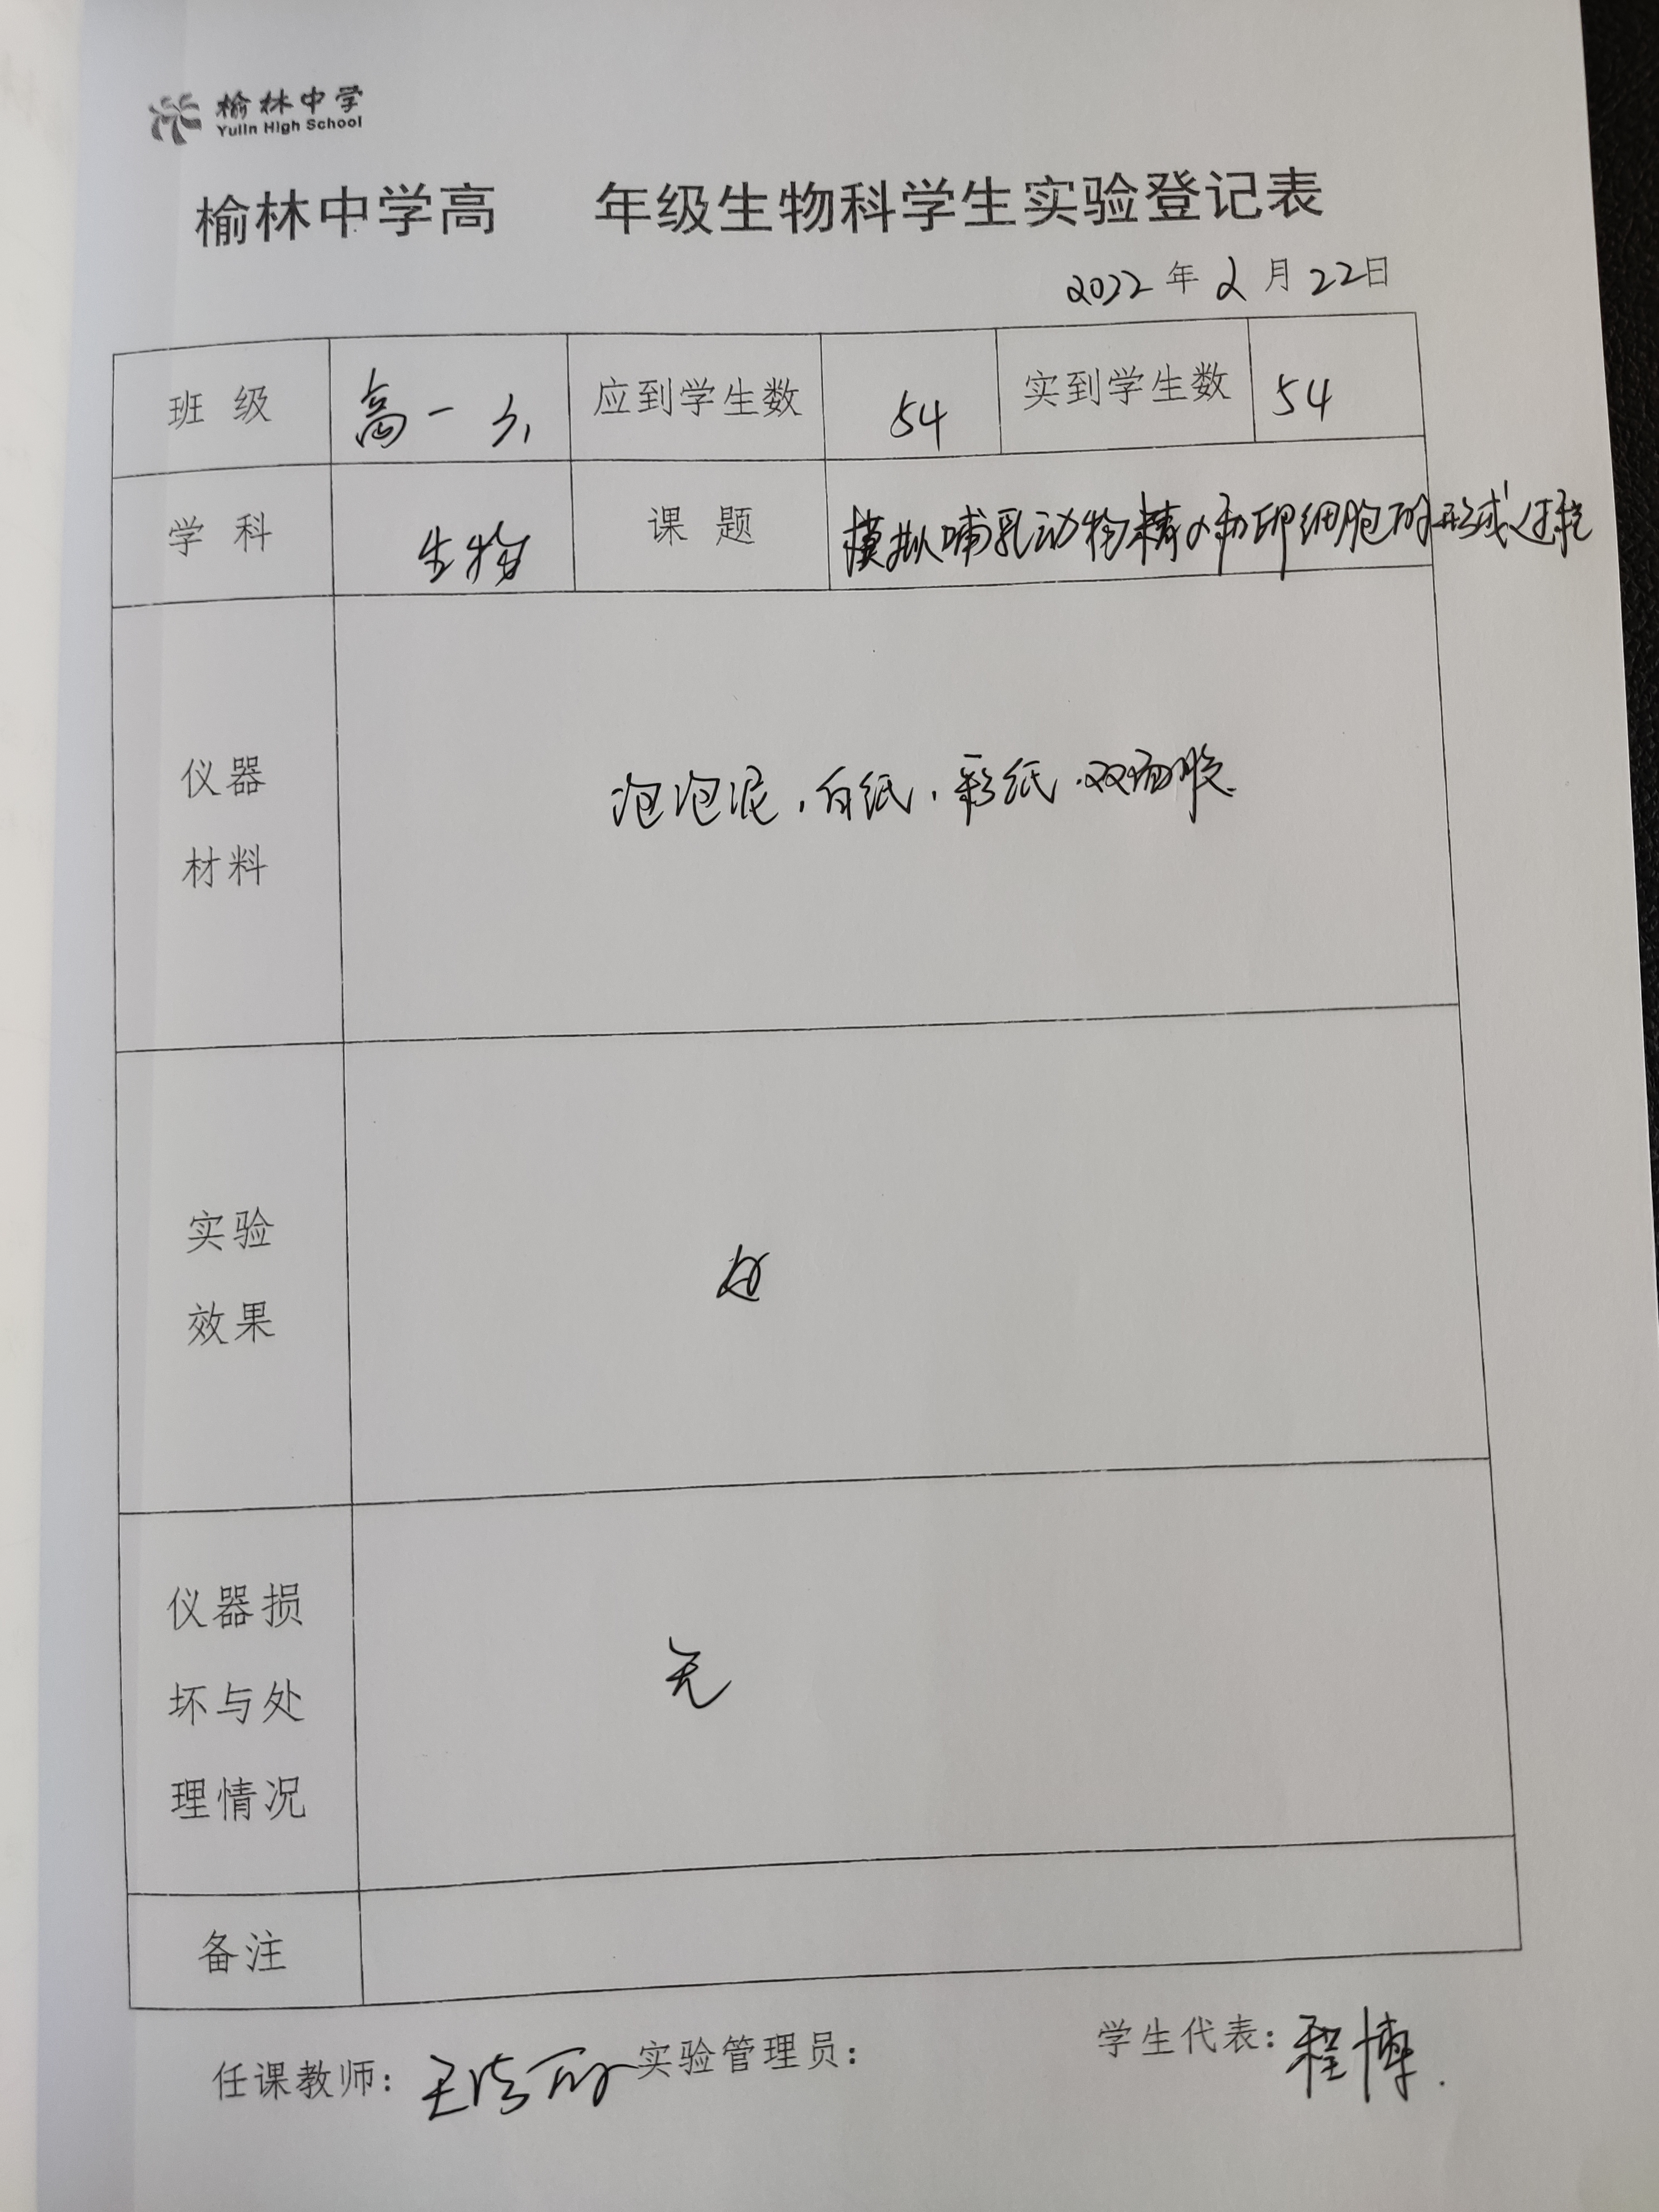 榆林中学
Yulin High School
榆林中学高 年级生物科学生实验登记表
2022年2月22日
班级 高一 应到学生数 54 实到学生数 54
学科 生物 课题 模拟哺乳动物精子和卵细胞的形成过程
仪器
材料
泡泡泥,白纸,彩纸.双面胶.
实验
效果
好
仪器损
坏与处
理情况
无
备注
任课教师: 实验管理员: 学生代表:程博.